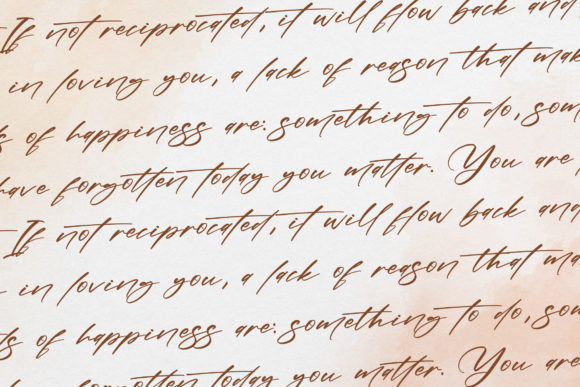 If not reciprocated, it will flow back and
in loving you, a lack of reason that
of happiness are: something to do,
have forgotten today you matter. You are
If not reciprocated, it will flow back and
in loving you, a lack of reason that
of happiness are: something to do,
forgotten today you matter. You are